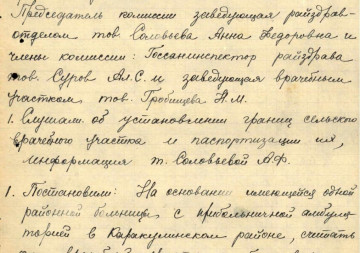 . Председатель комиссии заведующая райздрав-
отделом тов. Соловьева Анна Федоровна и
члены комиссии: Госсанинспектор райздрава
тов. Суров Ал. С. и заведующая врачебным
участком тов. Гробищева А.М.
1. Слушали: об установлении границ сельского
врачебного участка и паспортизации их,
Информация т. Соловьевой А.Ф.
1. Постановили: На основании имеющейся одной
районной больницы с прибольничной амбула-
торией в Каракулинском районе, считать